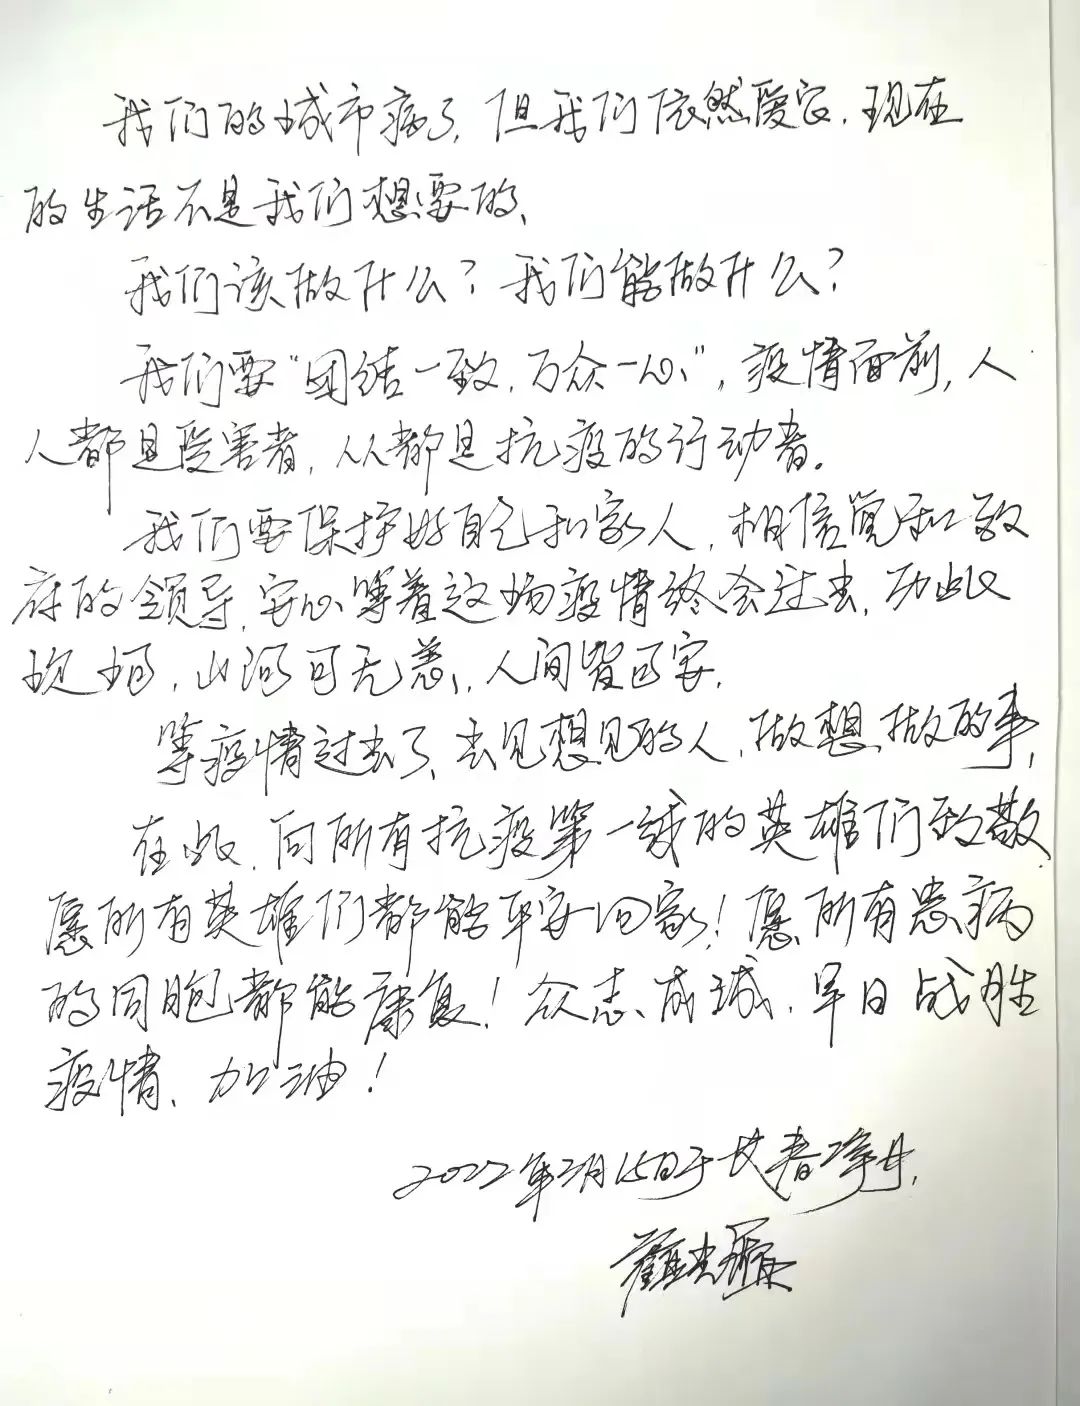 我们的城市病了，但我们依然爱它，现在
的生活不是我们想要的、
我们该做什么？我们能做什么？
我们要“团结一致，万众一心”，疫情面前，人
人都是受害者，人人都是抗疫的行动者。
我们要保护好自己和家人，相信党和政
府的领导，安心等着这场疫情终会过去，历此
坎坷，山河可无恙，人间皆可安，
等疫情过去了、去见想见的人，做想做的事，
在此，向所有抗疫第一线的英雄们致敬
愿所有英雄们都能平安回家！愿所有患病
的同胞都能康复！众志成城，早日战胜
疫情、加油！
2022年3月15日于